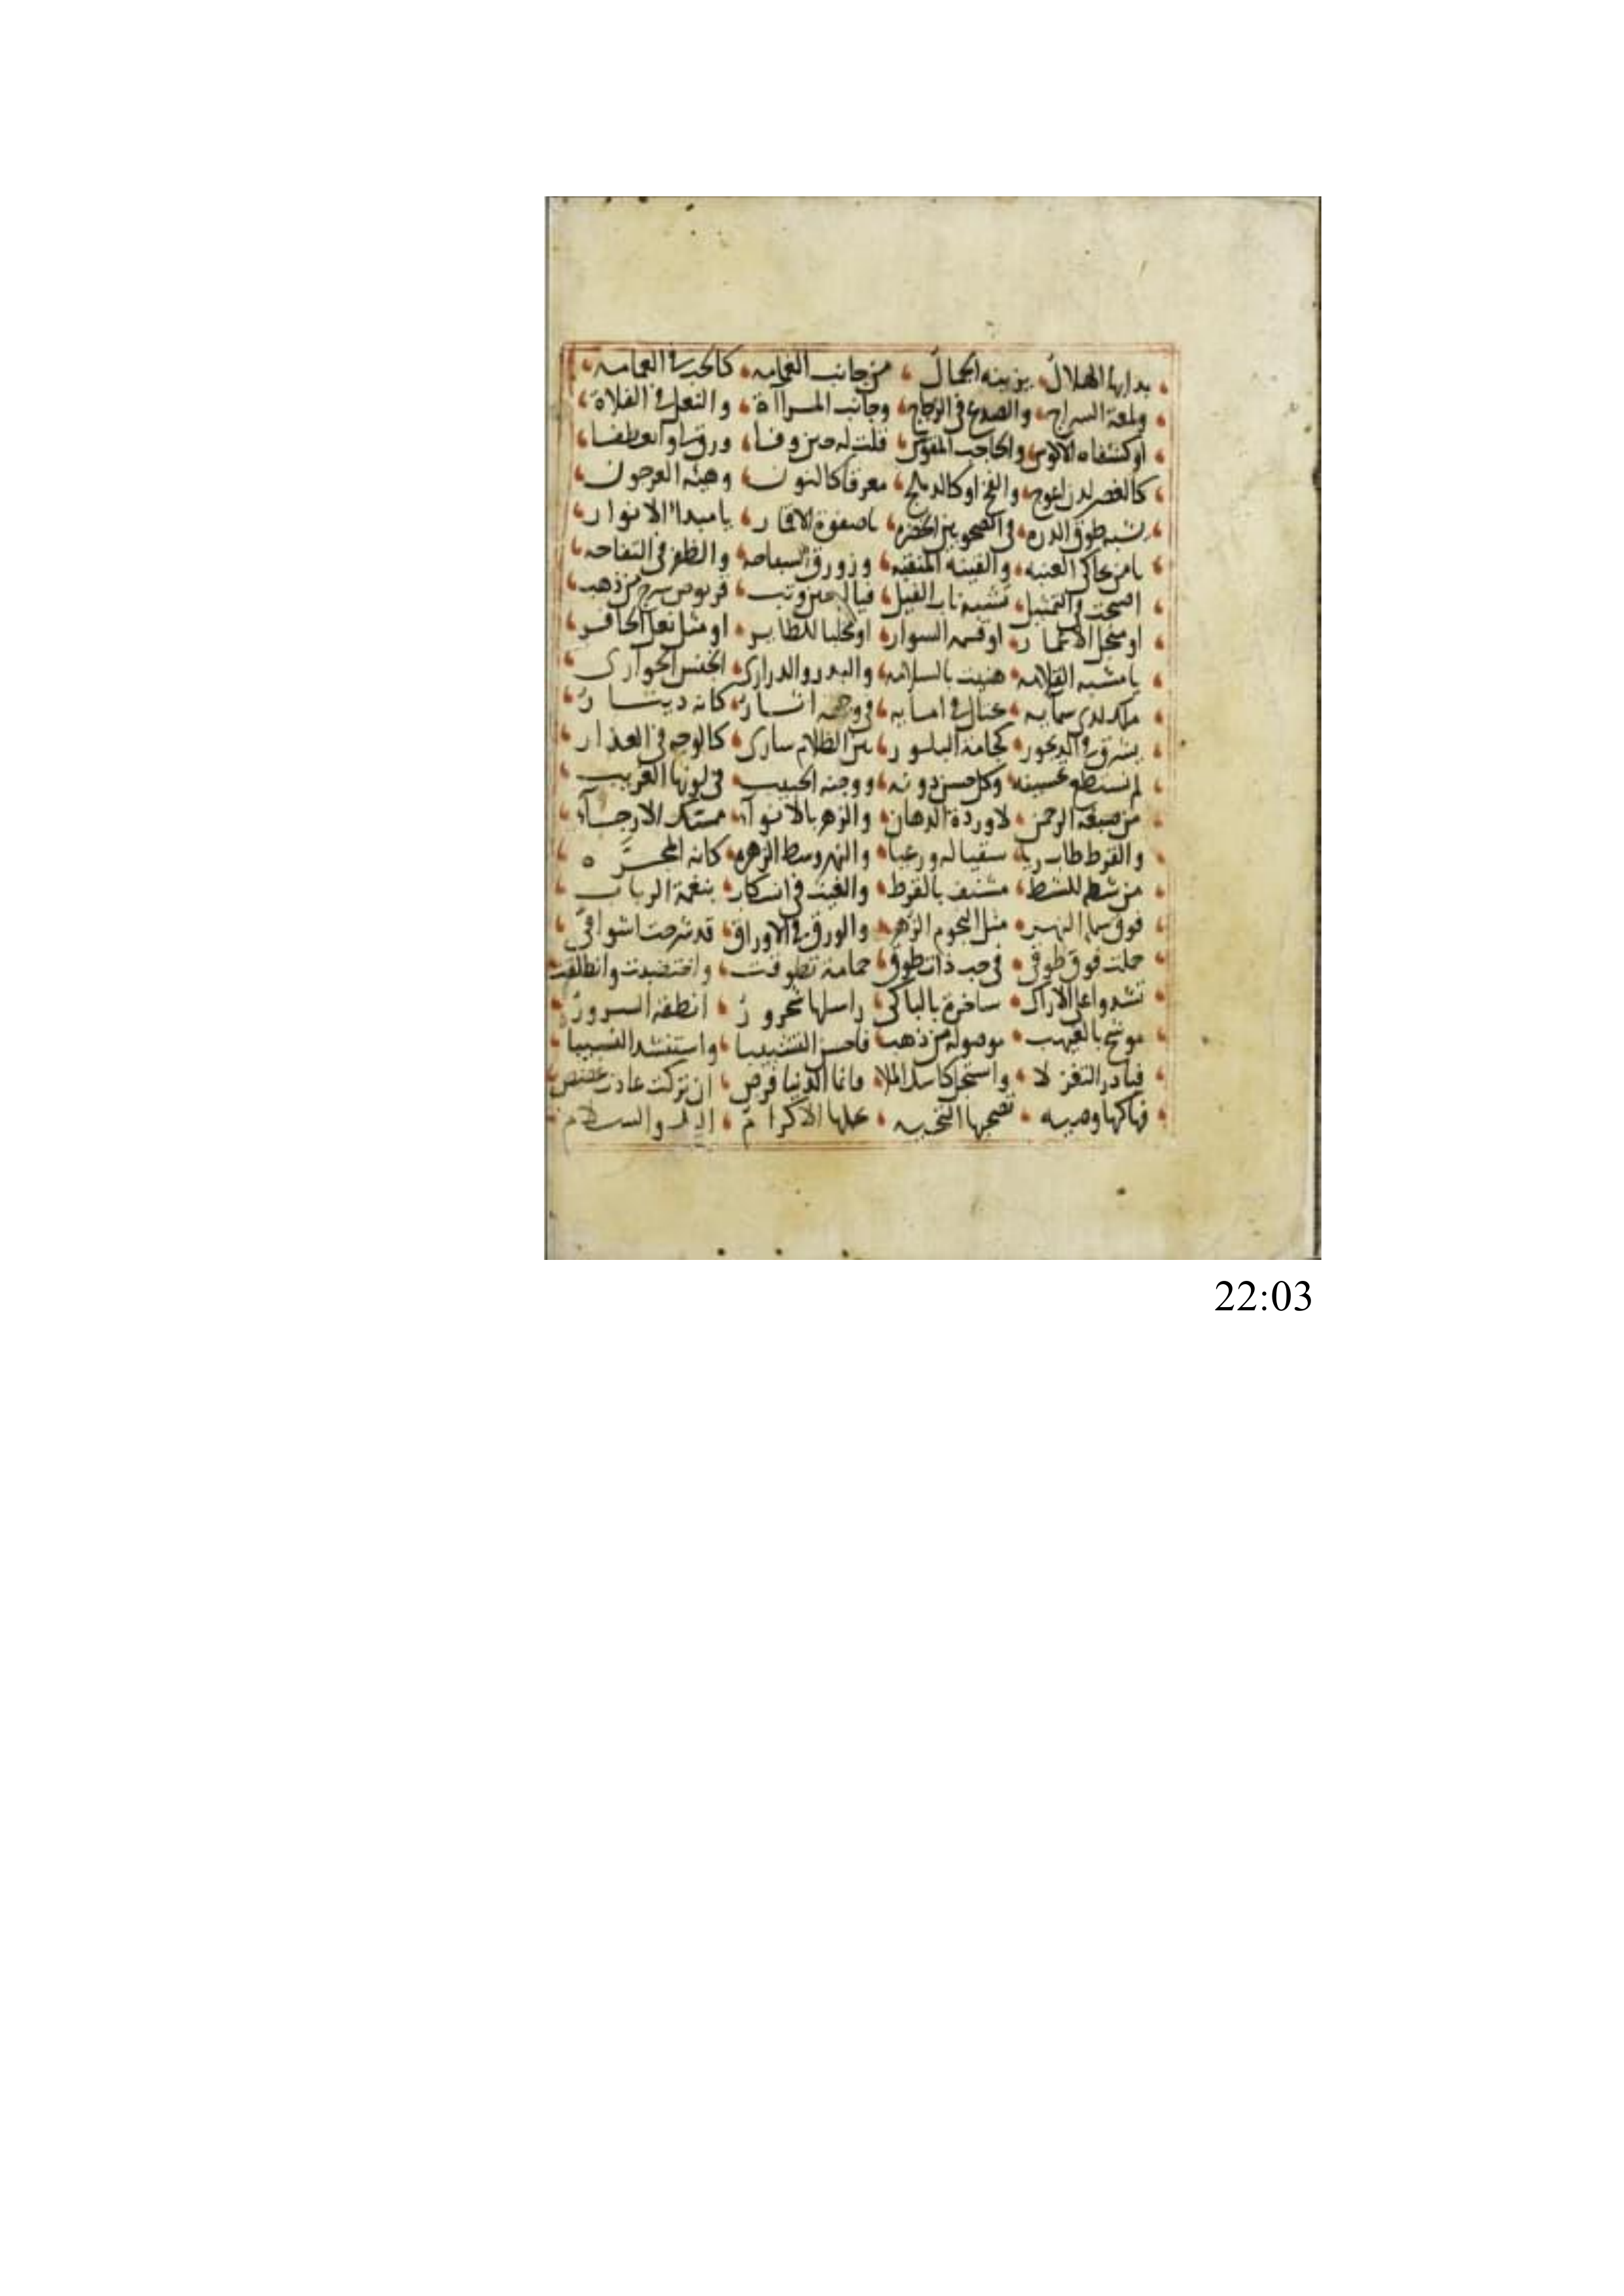 بدا بها الهلال يزينه الجمال من جانب الغمامه كالحب في العمامه
ولمعة السراج والصدع في الزجاج وجانب المرآة والنعل في الفلاة
او كشفاه الاكوس والحاجب المقوس قلت له حين وفا ورق لي وانعطفا
كالغصن لدن اعوج والفخ او كالدملج معرفا كالنون وهيئة العرجون
يشبه طوق الدره في الصحو بين الخضره يا صفوة الاقمار يا مبدا الانوار
يا من يحاكي العنبه والقينه المنقبه وزورق السباحه والظفر في التفاحه
اصبحت في التمثيل تشبيه ناب الفيل فيا له حين وثب قربوس سرج من ذهب
او منجل الاعمار او قسمه السوار او مخلبا للطاير او مثل نعل الحافر
يا مشبه القلامه هنيت بالسلامه والبدر والدراري الخنس الجواري
ملك لدى سمايه يختال في امايه في وجهه اثار كانه دينار
يشرق في الديجور كجامة البلور بين الظلام ساري كالوجه في العذار
لم نستطع تحسينه وكل حسن دونه ووجنه الحبيب في لونها الغريب
من صبغة الرحمن لا وردة الدهان والزهر بالانوآء ممسك الارجآء
والقرط طاب ريا سقيا له ورعيا والنهر وسط الزهره كانه المجره
من شط للشط مشنف بالقرط والغيث في انسكاب بنغمة الرباب
فوق سما النهر مثل النجوم الزهر والورق في الاوراق قد شرحت اشواقي
حملت فوق طوقي في حب ذات طوق حمامة تطوقت واختضبت وانطلقت
تشدو اعلى الاراك ساخرة بالباكي راسلها شحرور انطقه السرور
موشح بالغيهب موصوله من ذهب فاحسن التشبيبا واستنشد النسيبا
فبادر التغزلا واستجل كاسات الملا فانما الدنيا فرص ان تركت عادت غصص
فهاكها وصيه تصحبها التحيه عليها الاكرام اليك والسلام
22:03